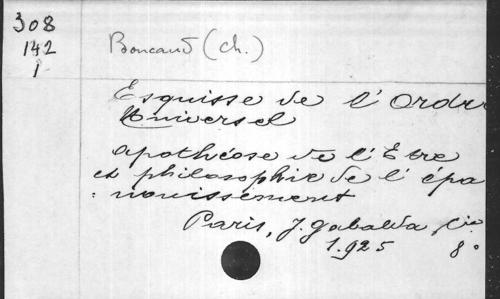 308
142
1
Boucaud (Ch.)
Esquisse de l'Ordre
Universel
Apothéose de l'Etre
et philosophie de l'épa
nouissement
Paris, J. Gabalda, Cie
1.925 8°